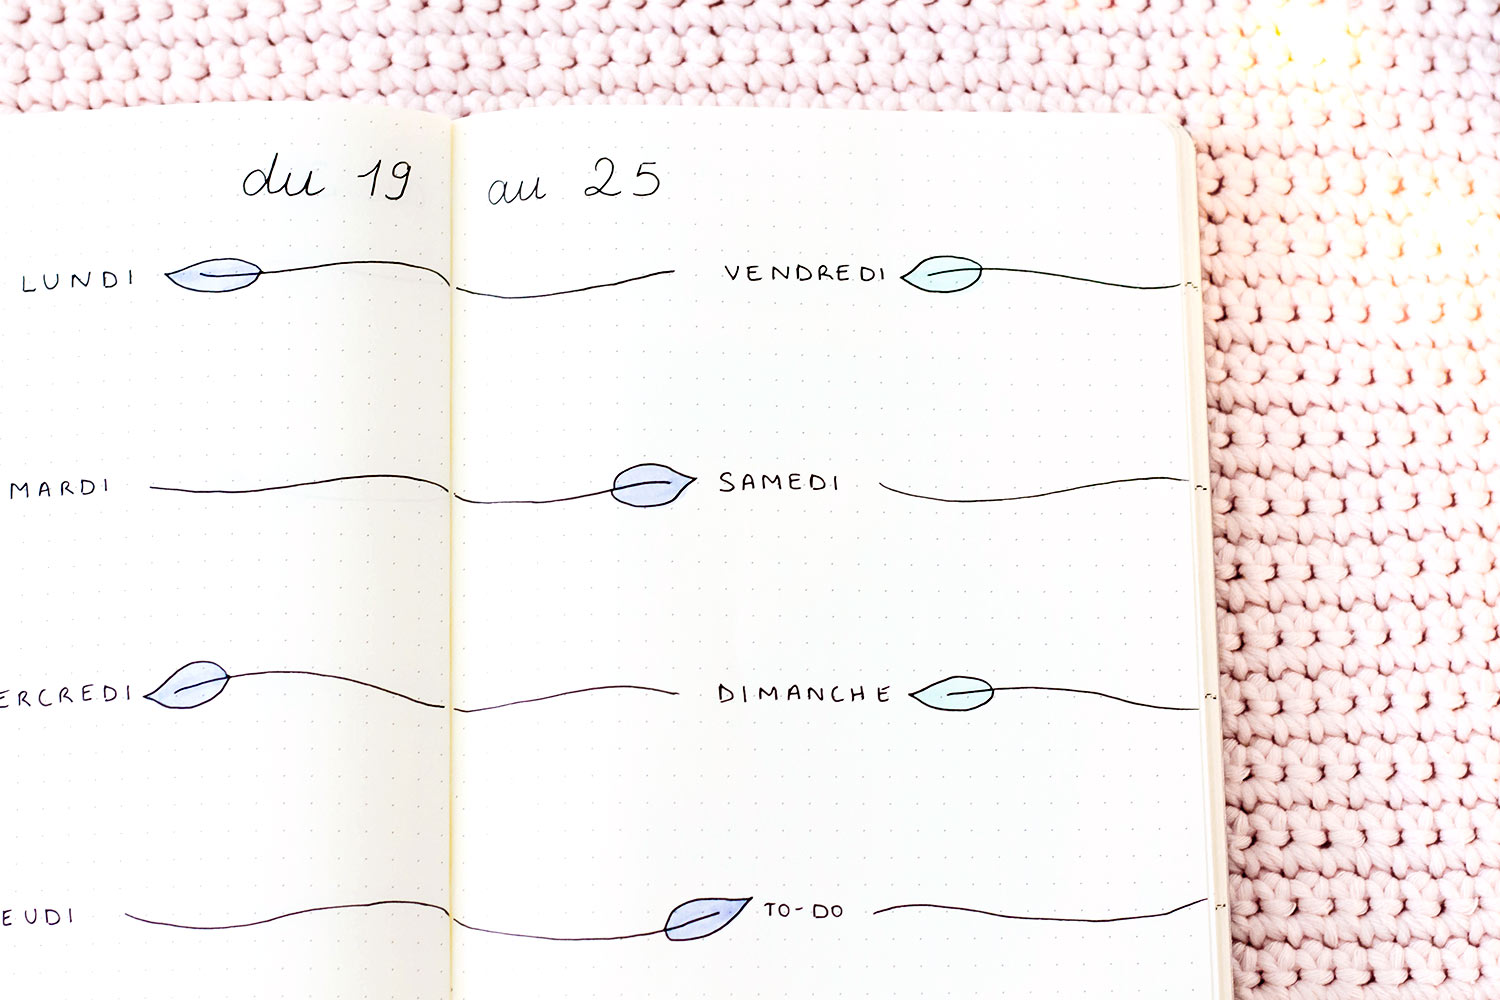 du 19 au 25
LUNDI
MARDI
ERCREDI
EUDI
VENDREDI
SAMEDI
DIMANCHE
TO-DO